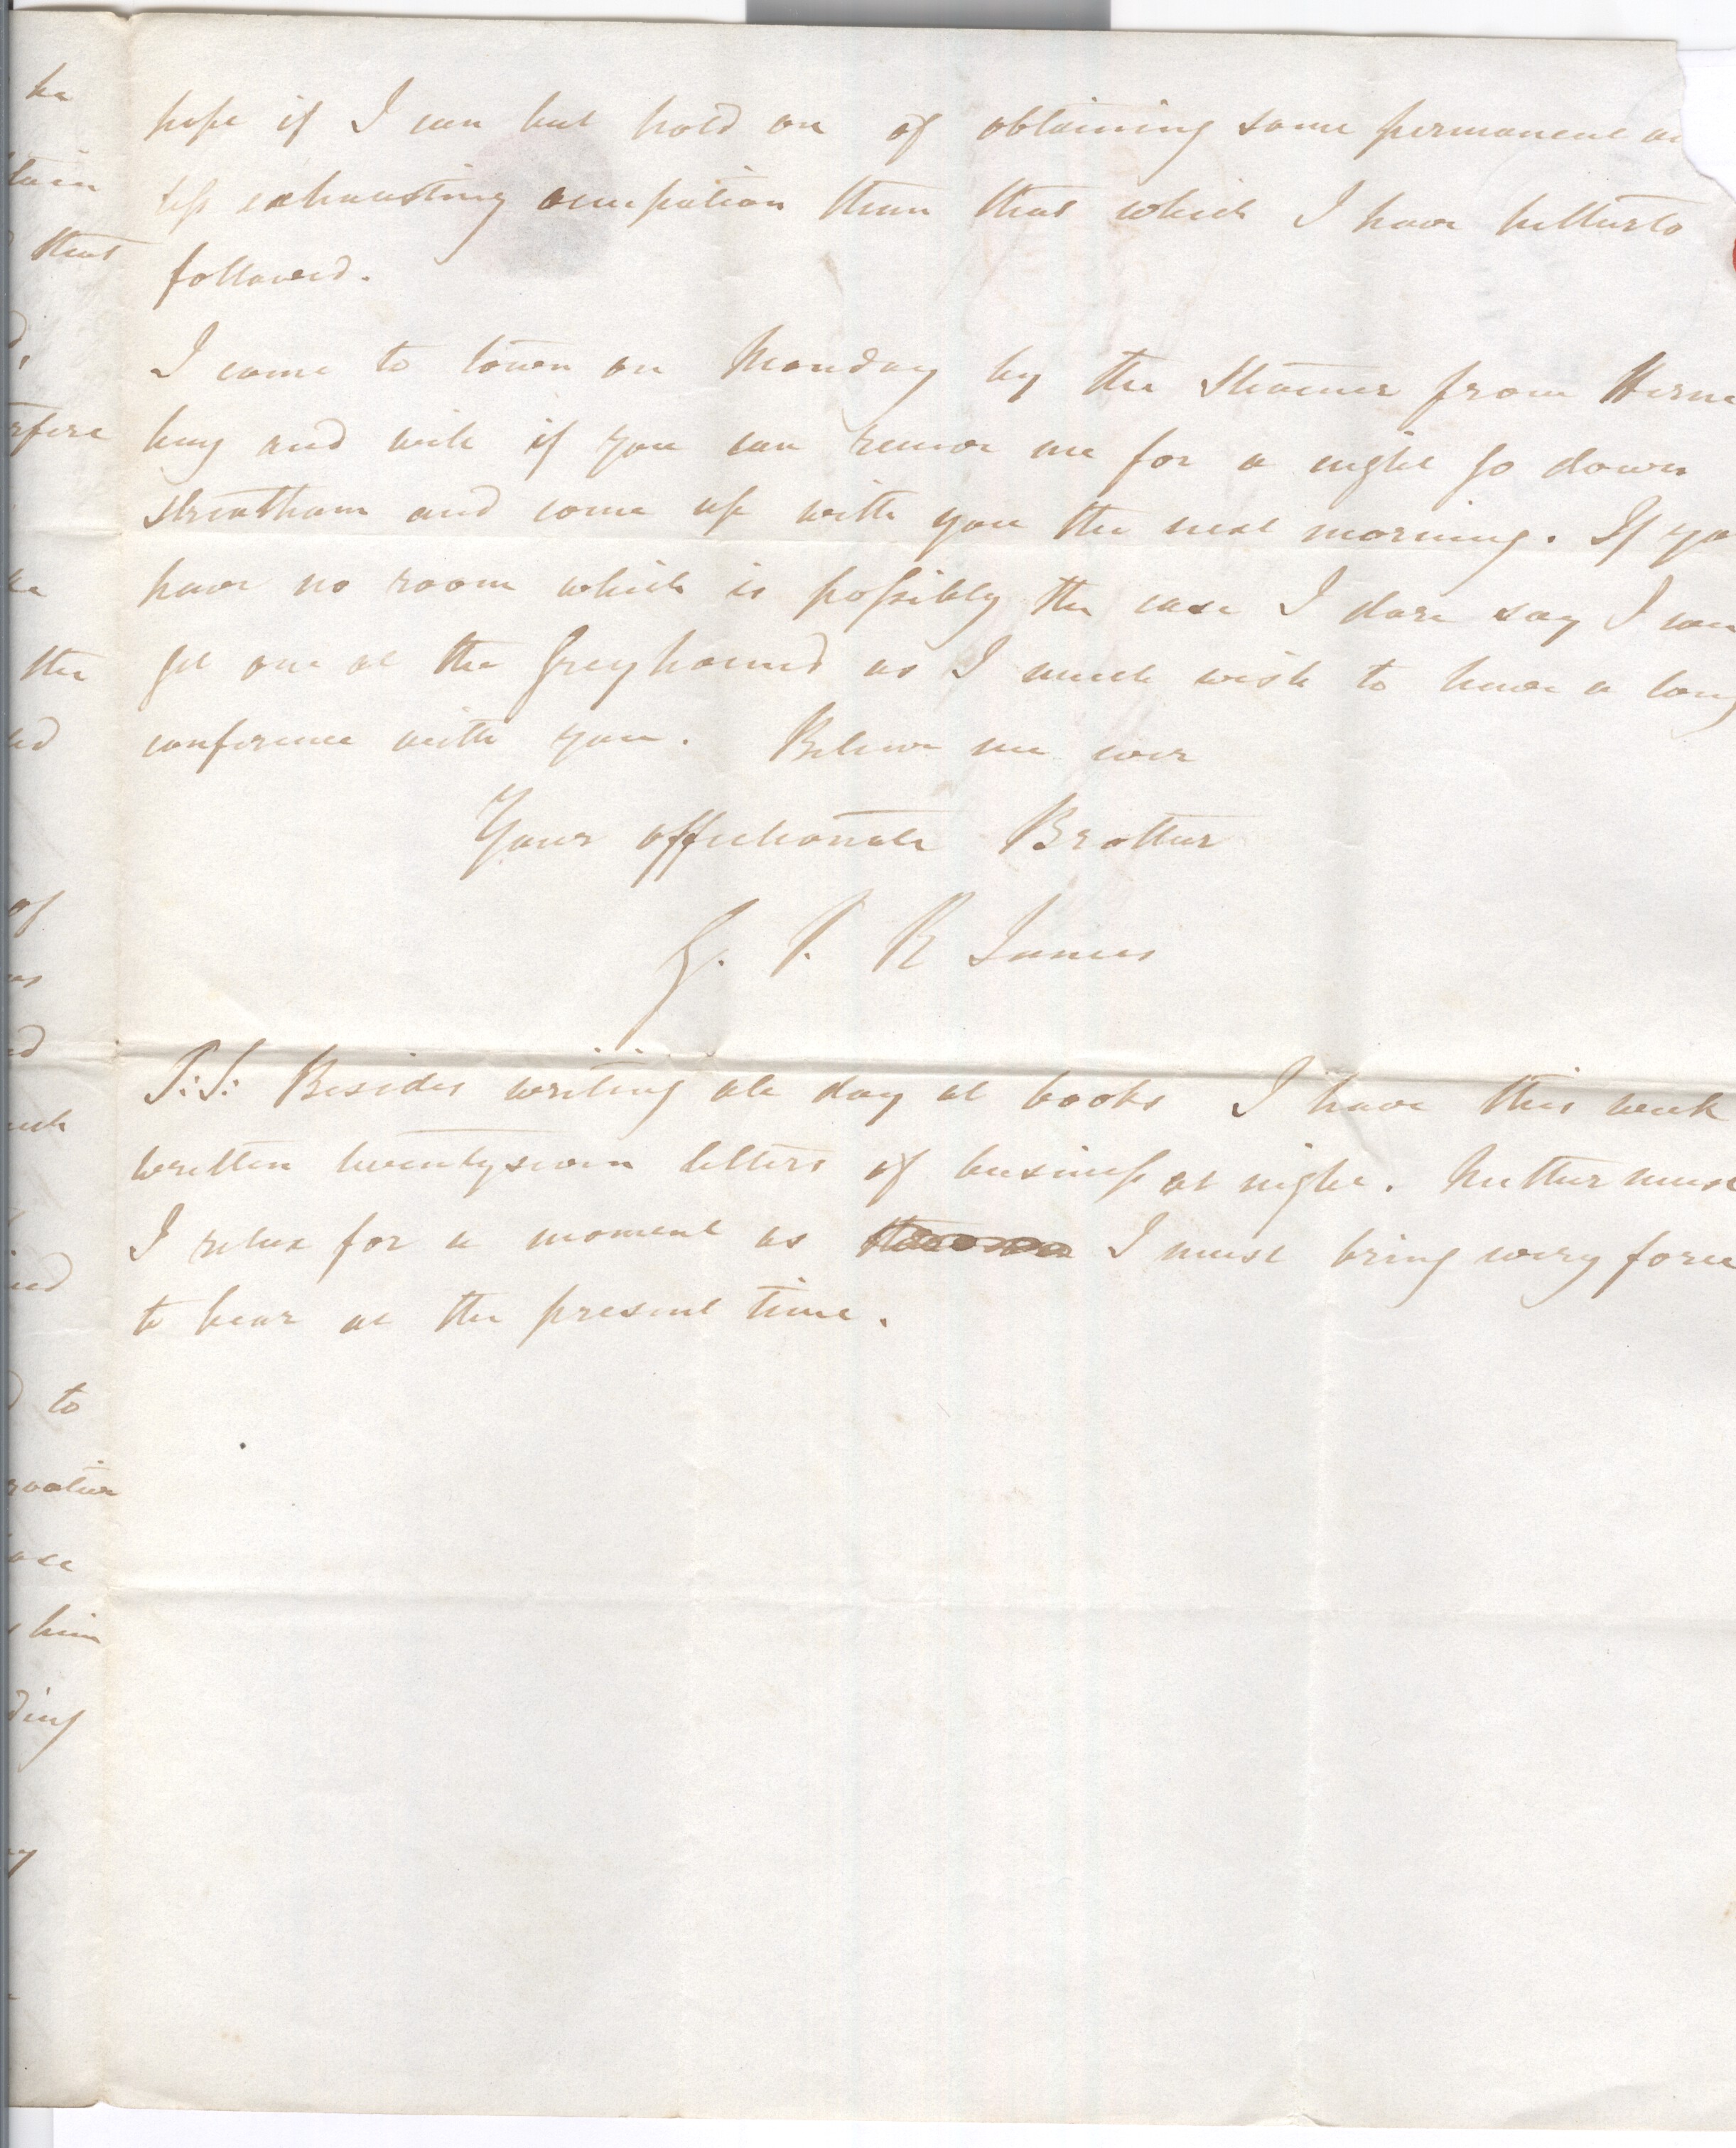 he
tain
that
rfere
the
of
to
him
ding
hope if I can but hold on of obtaining some permanent an
less exhausting occupation than that which I have hitherto
followed.
I come to town on Monday by the Steamer from Herne
bay and will if you can receive me for a night go down
Streatham and come up with you the next morning. If yo
have no room which is possibly the case I dare say I can
get one at the Greyhound as I much wish to have a long
conference with you. Believe me ever
Your affectionate Brother
G. P. R James
P:S: Besides writing all day at books I have this week
written twentyseven letters of business at night. Neither must
I relax for a moment as I must bring every force
to bear at the present time.